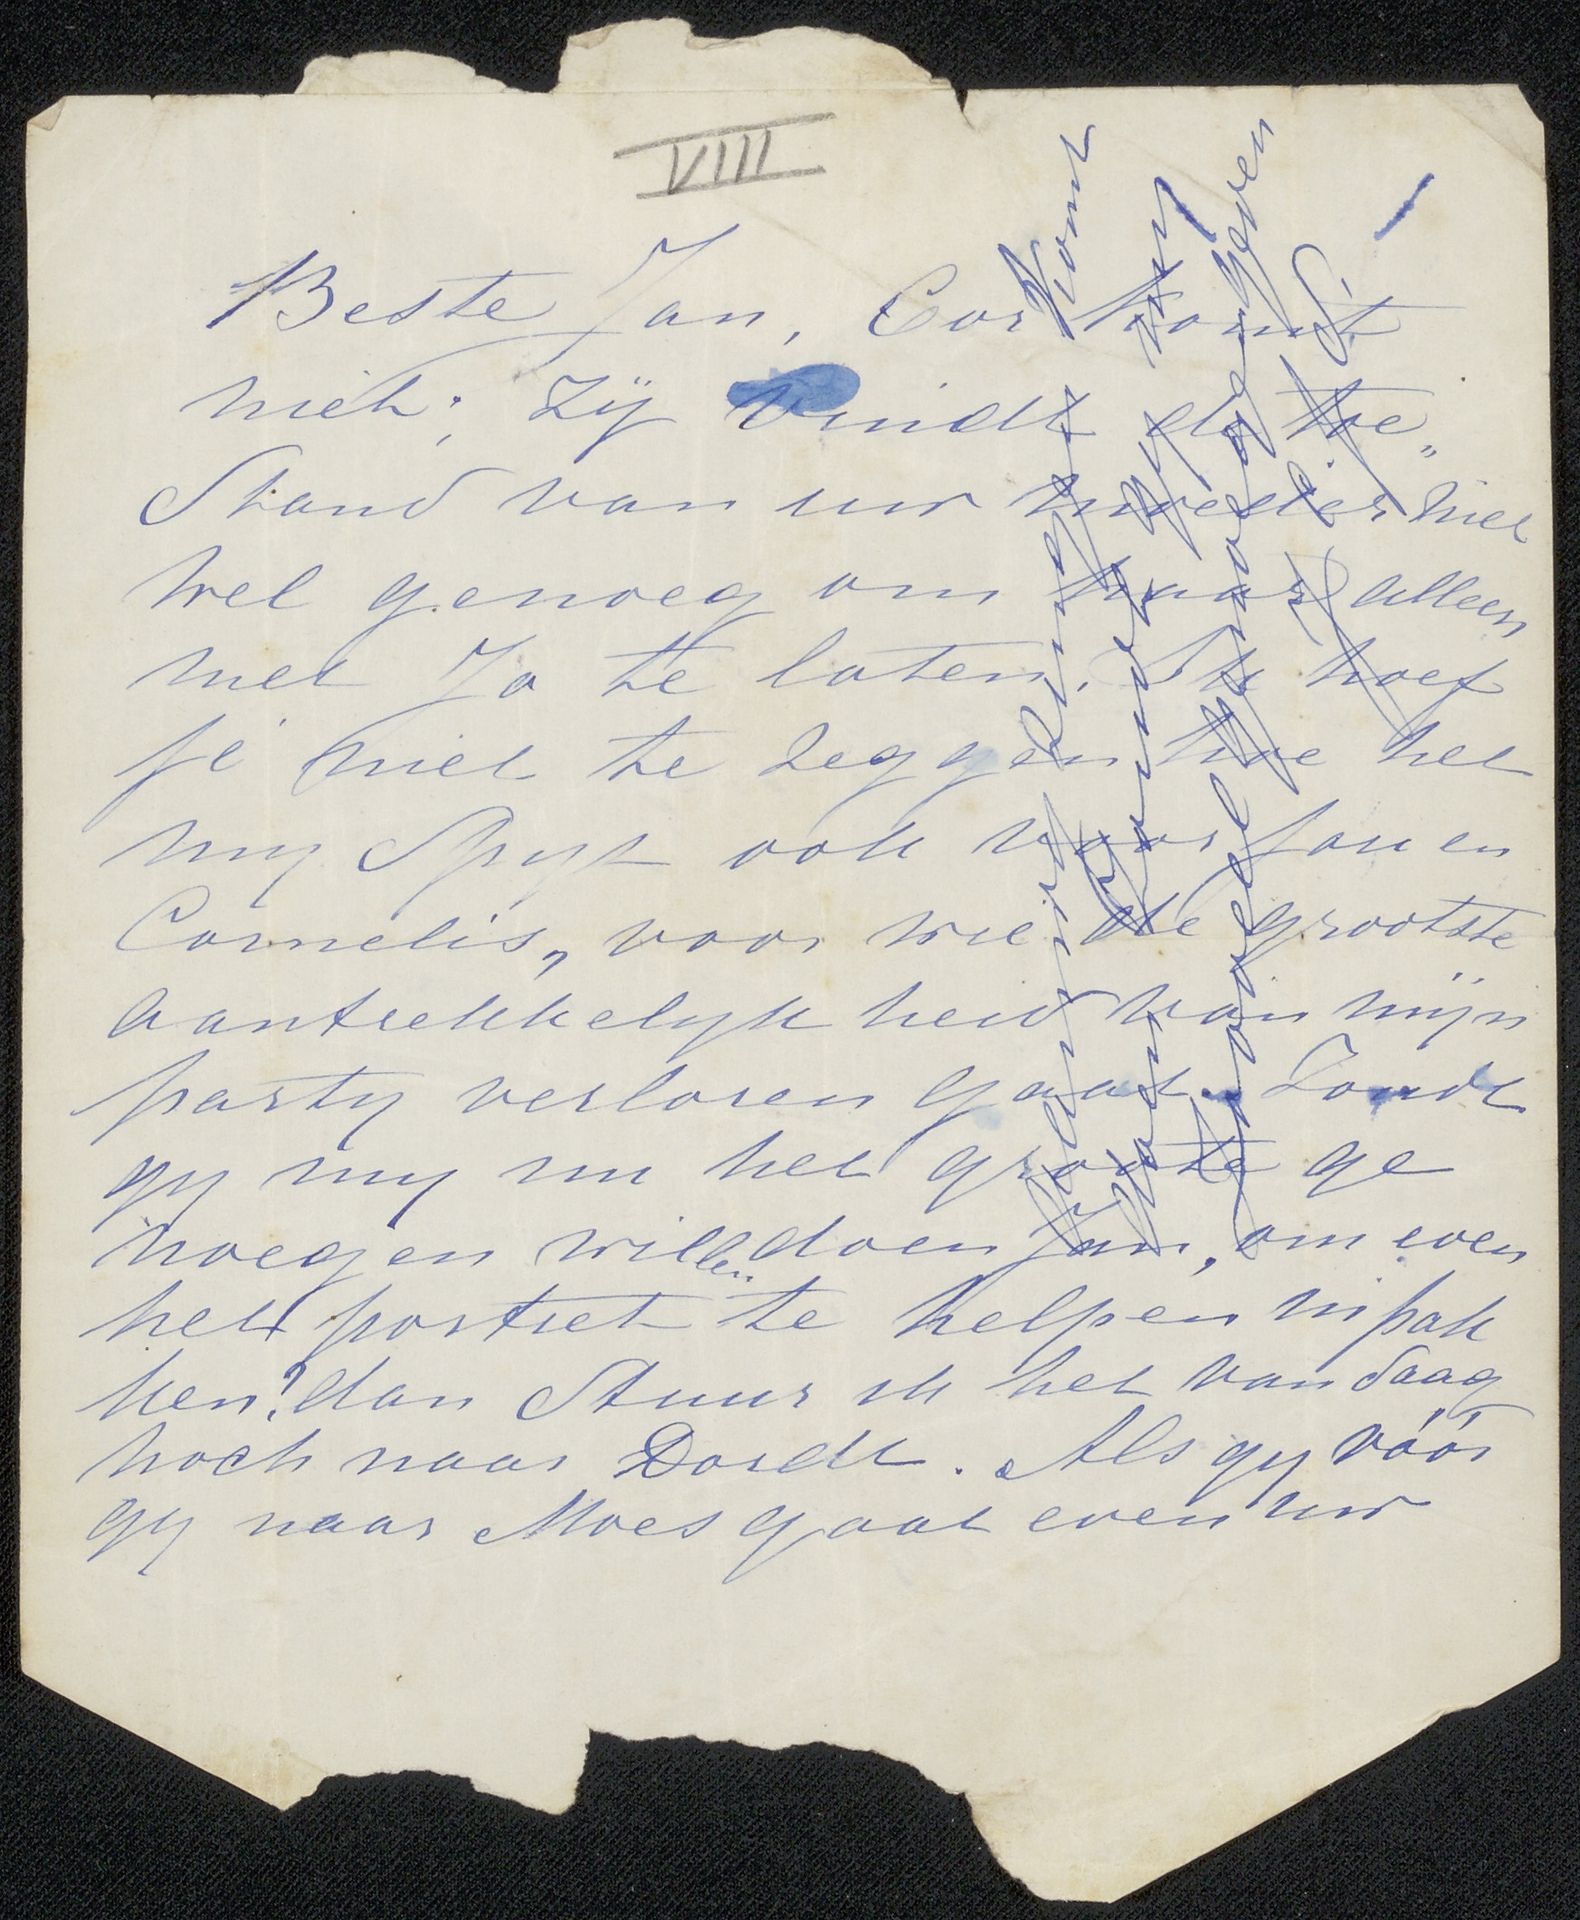 VIII
Beste Jan, Cor komt
niet; zÿ vindt de toe„
stand van uw moeder niet
wel genoeg om haar alleen
met Jo te laten. Ik hoef
je niet te zeggen hoe het
my spyt ook voor jou en
Cornelis, voor wie de grootste
aantrekkelykheid van mijn
party verloren gaat. Zoudt
gy my nu het groote ge
noegen willen doen Jan, om even
het portret te helpen inpak
ken? dan stuur ik het vandaag
noch naar Dordt. Als gy vóór
gy naar Moes gaat even uw
komt
gy my
genoegen geven